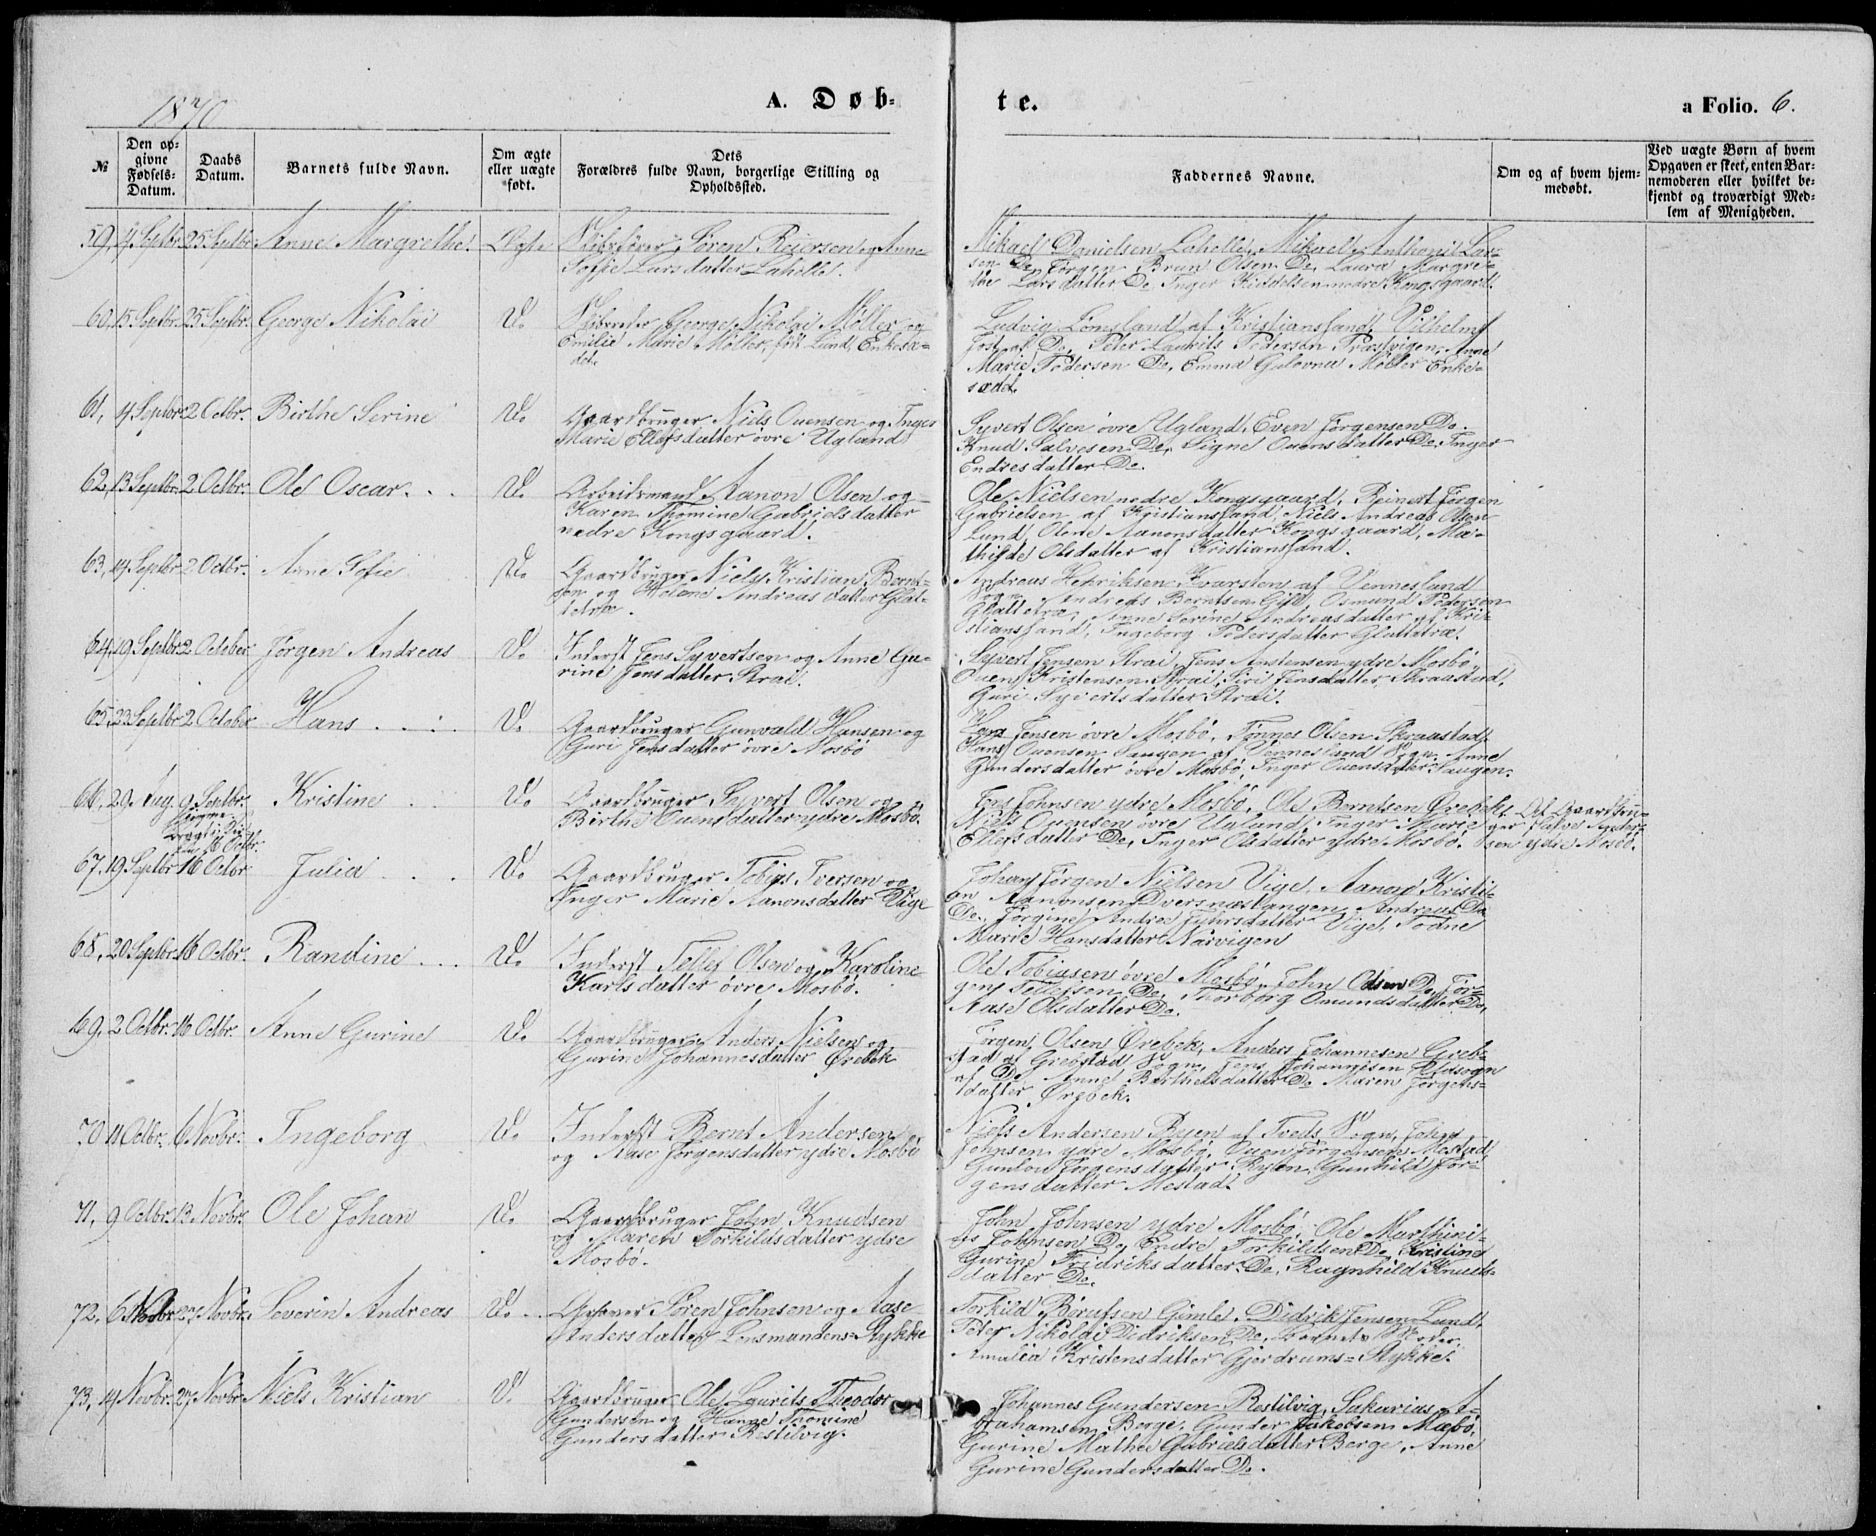 1870
A. Døb-
te.
a Folio. 6.
№
Den op-
givne
Fødsels-
Datum.
Daabs
Datum.
Barnets fulde Navn.
Om ægte
eller uægte
født.
Dets
Forældres fulde Navn, borgerlige Stilling og
Opholdssted.
Faddernes Navne.
Om og af hvem hjem-
medøbt.
Ved uægte Børn af hvem
Opgaven er skeet, enten Bar-
nemoderen eller hvilket be-
kjendt og troværdigt Med-
lem af Menigheden.
59, 4 Septbr. 25 Septbr. Anne Margrethe. Ægte Skibsfører Søren Reiersen og Anne
Sofie Larsdatter Lahelle.
Mikael Danielsen Lahelle, Mikael Anthoni Lar-
sen Do, Jørgen Brun Olsen Do, Laura Margre-
the Larsdatter Do, Inger Kiddelsen nedre Kongsgaard.
60, 15 Septbr. 25 Septbr. George Nikolai Do George Nikolai Møller og
Emilie Marie Møller, født Lund, Enkesæ-
det.
Ludvig Lønsland af Kristianssand, Vilhelm
Jost af Do, Peter Laurits Pedersen Præstvigen, Anne
Marie Pedersen Do, Emma Gulovna Møller Enke-
sædet.
61, 4 Septbr. 2 Octbr. Birthe Serine Do Gaardbruger Niels Ouensen og Inger
Marie Ellefsdatter øvre Ugland
Syvert Olsen øvre Ugland, Even Jørgensen Do.
Knud Salvesen Do, Signe Ouensdatter Do, Inger
Endresdatter Do.
62, 13 Septbr. 2 Octbr. Ole Oscar. . . Do Arbeidsmand Aanon Olsen og
Karen Thomine Gabrielsdatter
nedre Kongsgaard.
Ole Nielsen nedre Kongsgaard, Reinert Jørgen
Gabrielsen af Kristianssand, Niels Andreas Olsen
Lund, Olene Aanonsdatter Kongsgaard, Ma-
thilde Olsdatter af Kristianssand.
63, 19 Septbr. 2 Octbr. Anne Sofie Do Gaardbruger Niels Kristian Bernt-
sen og Helene Andreasdatter Glat-
tetræ.
Andreas Henriksen Kvarsten af Vennesland
Sogn, Andreas Berntsen Gill, Osmund Pedersen
Glattetræ, Anne Serine Andreasdatter af Kri-
stianssand, Ingeborg Pedersdatter Glattetræ.
64, 19 Septbr. 2 October Jørgen Andreas Do Inderst Jens Syvertsen og Anne Gu-
rine Jensdatter Strai.
Syvert Jensen Strai, Jens Anstensen ydre Mosbø,
Ouen Kristensen Strai, Siri Jensdatter Skraastad,
Guri Syvertsdatter Strai.
65, 23 Septbr. 2 October Hans . . . . Do Gaardbruger Gunvald Hansen og
Guri Jensdatter øvre Mosbø
Jensen øvre Mosbø, Tønnes Olsen Skraastad,
Hans Ouensen Haugen af Vennesland Sogn, Anne
Gundersdatter øvre Mosbø, Inger Ouensdatter Haugen.
66, 29 Aug. 9 Septbr. Kristine . . Do Gaardbruger Syvert Olsen og
Birthe Ouensdatter ydre Mosbø.
hjemme
16 Octbr.
Jens Johnsen ydre Mosbø, Ole Berntsen Ørebek,
Niels Ouensen øvre Ugland, Inger Marie
Ellefsdatter Do, Inger Olsdatter ydre Mosbø.
Gaardbru-
ger Salve Ander-
sen ydre Mosbø.
67, 19 Septbr. 16 Octbr. Julia . . . Do Gaardbruger Tobias Iversen og
Inger Marie Aanonsdatter Vige
Johan Jørgen Nielsen Vige, Aanon Kristi-
an Aanonsen Dversnæstangen, Andreas Do
Do, Jørgine Andrea Vige, Todne
Marie Hansdatter Narvigen
68, 20 Septbr. 16 Octbr. Randine . . . Do Inderst Tellef Olsen og Karoline
Karlsdatter øvre Mosbø.
Ole Tobiasen øvre Mosbø, John Olsen Do, Jør-
gen Tellefsen Do, Thorborg Omundsdatter Do,
Aase Olsdatter Do.
69, 2 Octbr. 16 Octbr. Anne Gurine Do Gaardbruger Anders Nielsen og
Gurine Johannesdatter Ørebek
Jørgen Olsen Ørebek, Anders Johannesen Greb-
stad af Grebstad Sogn, Jens Johannesen
af Do, Anne Barthelsdatter Do, Maren Jørgens-
datter Ørebek.
70 11 Octbr. 6 Novbr. Ingeborg Do Inderst Bernt Andersen
og Aase Jørgensdatter ydre Mosbø
Niels Andersen Ryen af Tveits Sogn, John
Johnsen ydre Mosbø, Ouen Jørgensen Mestad,
Gunlou Jørgensdatter Ryen, Gunhild Jør-
gensdatter Mestad.
71, 9 Octbr. 13 Novbr. Ole Johan Do Gaardbruger John Knudsen
og Maren Torkildsdatter ydre
Mosbø.
John Johnsen ydre Mosbø, Ole Marthini-
us Johnsen Do, Endre Torkildsen Do, Kristine
Gurine Fridriksdatter Do, Ragnhild Knuds-
datter Do.
72, 6 Novbr. 27 Novbr. Severin Andreas Do Søren Johnsen og Aase
Andersdatter Lensmandens-Stykke
Torkild Børufsen Gimle, Didrik Jensen Lund,
Peter Nikolai Didriksen Do, Barnets Moder,
Amalia Kristensdatter Gjerdrums-Stykke.
73, 14 Novbr. 27 Novbr. Niels Kristian Do Gaardbruger Ole Laurits Theodor
Gundersen og Hanne Thomine
Gundersdatter Bestilvig.
Johannes Gundersen Bestilvig, Sakarias A-
brahamsen Berge, Gunder Jakobsen Mæbø,
Gurine Mathea Gabrielsdatter Berge, Anne
Gurine Gundersdatter Do.